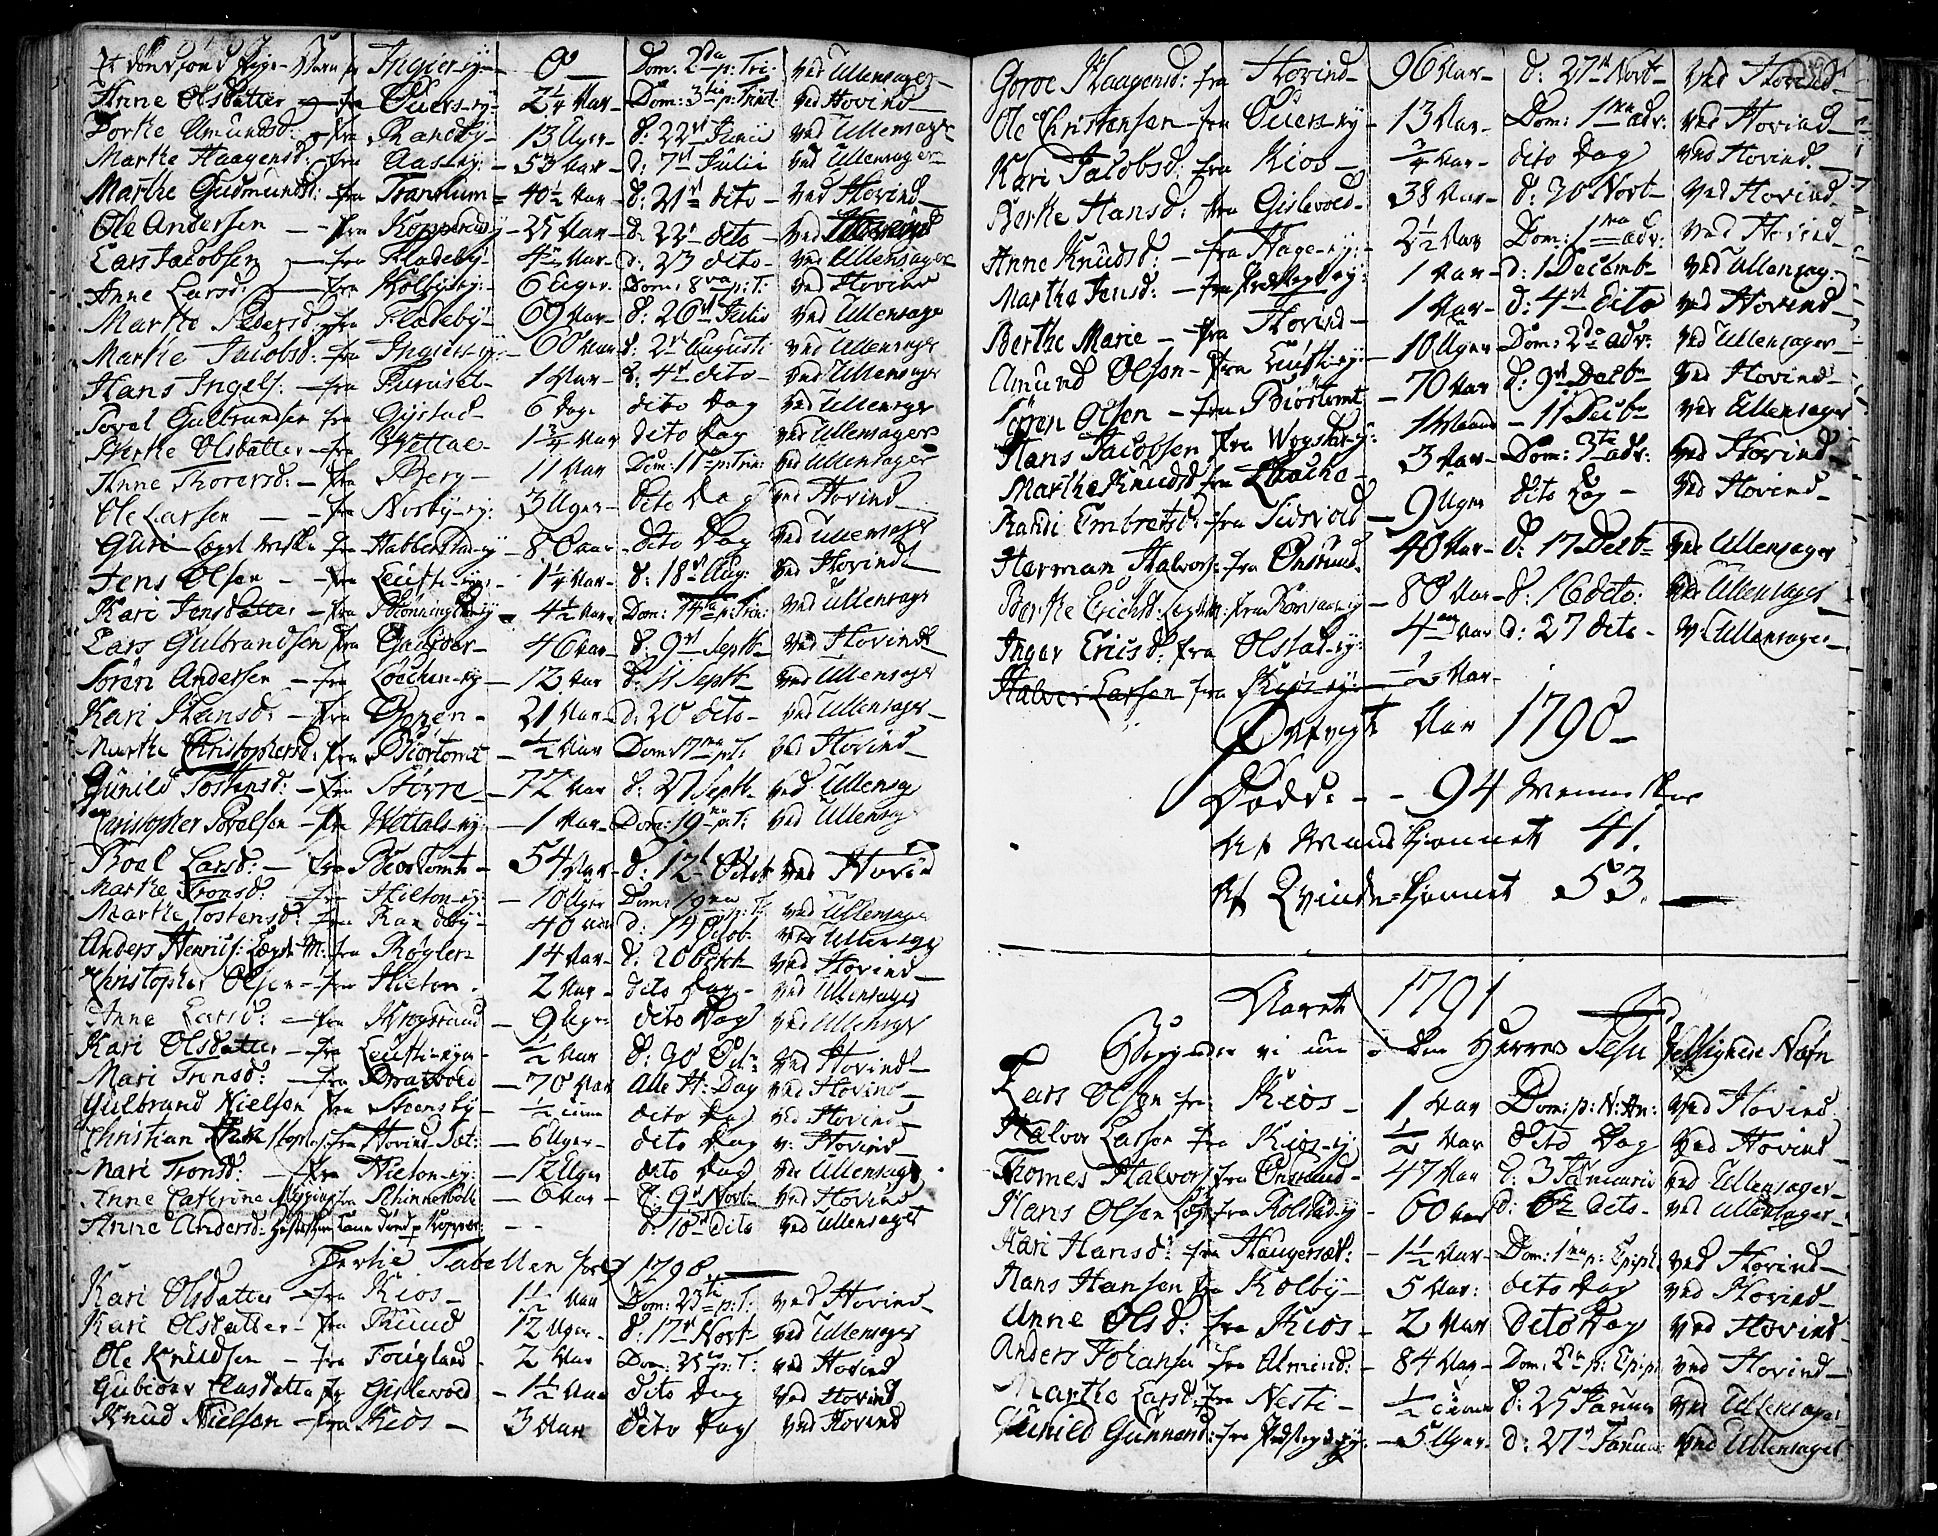 Et dødfød Pige-Barn fr Ingiers-ey - 0 - Dom: 2da p: Tri: ved Ullensager
Anne Olsdatter - fra Huers-ey - 2 1/4 Aar - Dom: 3tia p: Trinit ved Hovind
Torke Amundsd: fra Randby - 13 Uger - d: 22 Junii ved Ullensager
Marthe Haagensd: fra Aas-ey - 53 Aar - d: 7 Julii ved Ullensager
Marthe Gudmundsd: fra Tranhum - 40 1/2 Aar - d: 21 dito - ved Hovind
Ole Andersen - fra Kopperud-ey - 25 Aar - d: 22 dito - ved
Lars Jacobsen - fra Fladeby - 4 Aar - d: 23 dito - ved Ullensager
Anne Larsd: - fra Kolby-ey - 6 Uger - Dom: 8va p: T: ved Hovind
Marthe Pedersd: fra Fladeby - 69 Aar - d: 26 Julii ved Ullensager
Marthe Jacobsd: fra Ingiers-ey - 60 Aar d: 2 Augusti ved Ullensager
Hans Ingels: - fra Furuset - 1 Aar - d: 4 dito - ved Ullensager
Povel Gulbrandsen fra Gystad - 6 Dage dito Dag ved Ullensager
Berthe Olsdatter - fra Wettal - 1 3/4 Aar dito Dag ved Ullensager
Anne Thorersd: - fra Berg - 11 Aar Dom: 11 p: Trin: ved Ullensager
Ole Larsen - fra Norby-ey: 3 Uger - dito Dag ved Hovind
Guri Lægd fra Habberstad-ey - 80 Aar - dito Dag ved Ullensager
Jens Olsen - fra Leufsti-ey: 1 1/4 Aar - d: 18 Aug: ved Hovind
Kari Jensdatter - fra - 4 1/2 Aar - Dom: 14ta p: Trin: ved Ullensager
Lars Gulbrandsen fra - 46 Aar - d: 9 Septb ved Hovind
Søren Andersen - fra Løachen-ey - 12 Aar d: 11 Septb ved Ullensager
Kari Hansd: - fra Opøen - 21 Aar - d: 20 dito - ved Ullensager
Marthe Christophersd: fra Biørtomt - 1/2 Aar Dom 17ma p: T: ved Hovind
Gunild Tostensd: - fra Større - 72 Aar d: 27 Septb - ved Ullensag
Christopher Povelsen - fra Wettals-ey: - 1 Aar - Dom: 19na p: T: ved Ullensag
Roal Larsd: - fra Biørtomt - 54 Aar - d: 12 Octob ved Hovind
Marthe Tronsd: - fra Hilton-ey: - 10 Uger Dom: 19na p: T: ved Ullensager
Marthe Tostensd: fra Randeby - 40 Aar d: 19 Octob: ved Ullensager
Anders Henrics: Lægds M: fra Røgler - 14 Aar - d: 20 Octob ved Hovind
Christopher Olsen - fra Hielton - 2 Aar - dito Dag - ved Ullensager
Anne Larsd: - fra Krogsrud - 9 Uger dito Dag ved Ullensager
Kari Olsdatter - fra Leufsti-eyer - 1/2 Aar d: 30 Oct: ved Hovind
Mari Tronsd: - fra Bratvold - 70 Aar Alle H: Dag ved Hovind
Gulbrand Nielsen fra Steensby - 1/2 time dito Dag ved Hovind
Christian Christophs: fra Hovind-Sæt: - 6 Uger - dito Dag v: Hovind
Mari Tronsd: - fra Hielton-ey: - 12 Uger dito Dag ved Ullensager
Anne Catrine fra Skinnerboll - 6 Aar - d: 9 Novb: ved Hovind
Anne Andersd: - - d: 10 dito ved Ullensager
Tabellen for 1790
Kari Olsdatter - fra Kios - 1 1/2 Aar Dom: 23tia p: T: ved Hovind
Kari Olsdatter - fra Ruud 12 Uger - d: 17 Novb ved Ullensager
Ole Knudsen - fra Fougland - 2 Aar Dom: 25 p: T: ved Hovind
Gubiør Clasdatter fra Gislevold - 1 1/2 Aar dito Dag ved Hovind
Knud Nielsen - fra Kios - 3 Aar dito Dag ved Hovind
Goroe Haagensd: fra Hovind - 96 Aar - d: 27 Novb - ved Hovind
Ole Christensen - fra Huers-ey - 13 Aar - Dom: 1ma adv: ved Hovind
Kari Jacobsd: fra Kios - 3/4 Aar - dito Dag ved Hovind
Berthe Hansd: fra Gislevold - 38 Aar - d: 30 Novb - ved Hovind
Anne Knudsd: - fra Hage-ey: 2 1/2 Aar Dom: 1ma adv: ved Hovind
Marthe Jensd: - fra 1 Aar - d: 1 Decemb ved Ullensag:
Berthe Marie - fra Hovind - 1 Aar - d: 4 dito ved Hovind
Amund Olsen - fra Leufsti-ey: - 10 Uger Dom: 2da adv: ved Ullensager
Søren Olsen - fra Biørtomt - 70 Aar d: 9 Decb ved Hovind
Hans Jacobsen fra Wogstad-ey: 1 Maaned - 11 Decb ved Ullensager
Marthe Knudsd fra Løache - 3 Aar - Dom: 3tia adv: ved Hovind
Randi Embretsd: fra Tiøsvold - 9 Uger dito Dag - ved Hovind
Herman Halvors: fra Onsrud - 40 Aar - d: 17 Decb ved Ullensager
Berthe Erichsd: Lægds M: fra - 80 Aar - d: 16 dito: ved Ullensager
Inger Ericsd: fra Olstad-ey: 4 Aar d: 27 dito - v: Ullensager
Halver Larsen fra Kios-ey: 1/2 Aar -
Udi Aar 1790
Døde - - 94 Mennisker
Af Mandkiønnet 41.
Af Qvinde-kiønnet 53.
Aaret 1791
Begynder vi i den Herres Jesu velsignede Nafn
Lars Olsen fra Kios - 1 Aar Dom: p: N: An: ved Hovind
Halvor Larsen fra Kios-ey: 1/2 Aar dito Dag ved Hovind
Thomes Halvors: fra Onsrud - 47 Aar d: 3 Januarii ved Ullensager
Hans Olsen Lægd fra Rolstad-ey - 60 Aar d: 6 dito - ved Ullensager
Kari Hansd: fra Haugersæt: - 1 1/2 Aar - Dom: 1ma p: Epiph: ved Hovind
Hans Hansen fra Kolby - 5 Aar: dito Dag ved Hovind
Anne Olsd: fra Kios - 2 Aar dito Dag ved Hovind
Anders Johansen fra Almind: - 84 Aar - Dom: 2da p: Epiph ved Hovind
Marthe Larsd: fra Nesti - 1/2 time d: 25 Januar ved Ullensager
Gunild Gunnersd: fra - 5 Uger - d: 27 Januar ved Ullensager